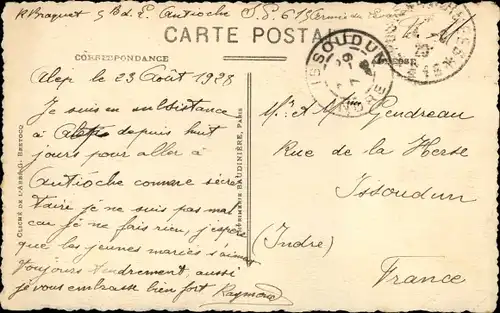 R Braquet
Antioche S.P. 615 Armée du Levant
CARTE POSTALE
CORRESPONDANCE
ADRESSE
ISSOUDUN
INDRE
Alep le 23 Août 1928
Je suis en subsistance
à Alep depuis huit
jours pour aller à
Antioche comme sécré
taire je ne suis pas mal
car je ne fais rien, j'espère
que les jeunes mariés s'aiment
toujours tendrement, aussi
je vous embrasse bien fort Raymond
Mr et Mme Gendreau
Rue de la Herse
Issoudun
(Indre)
France
CLICHÉ DE L'ABBÉ G. BERTOCQ
IMPRIMERIE BAUDINIÈRE, PARIS